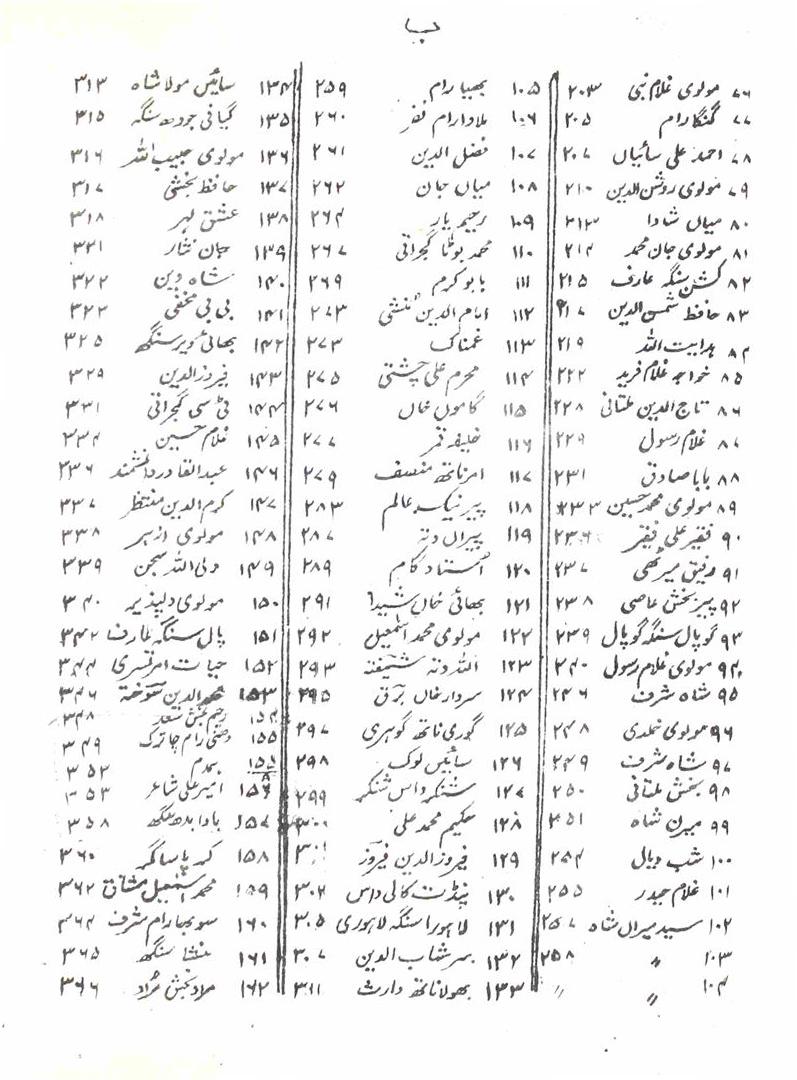 ب
۷۶ مولوی غلام نبی ۲۰۳
۷۷ گنگا رام ۲۰۵
۷۸ احمد علی سائیاں ۲۰۷
۷۹ مولوی روشن الدین ۲۱۰
۸۰ میاں شادا ۲۱۳
۸۱ مولوی جان محمد ۲۱۴
۸۲ کشن سنگھ عارف ۲۱۵
۸۳ حافظ شمس الدین ۲۱۷
۸۴ ہدایت اللہ ۲۱۹
۸۵ خواجہ غلام فرید ۲۲۲
۸۶ تاج الدین ملتانی ۲۲۸
۸۷ غلام رسول ۲۲۹
۸۸ بابا صادق ۲۳۱
۸۹ مولوی محمد حسین ۲۳۳
۹۰ فقیر علی فقیر ۲۳۶
۹۱ رفیق میرٹھی ۲۳۷
۹۲ پیر بخش عاصی ۲۳۸
۹۳ گوپال سنگھ گوپال ۲۳۹
۹۴ مولوی غلام رسول ۲۴۰
۹۵ شاہ شرف ۲۴۶
۹۶ مولوی ۲۴۸
۹۷ شاہ شرف ۲۴۹
۹۸ بخش ملتانی ۲۵۰
۹۹ میرن شاہ ۲۵۱
۱۰۰ شب دیال ۲۵۴
۱۰۱ غلام حیدر ۲۵۵
۱۰۲ سید میراں شاہ ۲۵۷
۱۰۳ 〃 ۲۵۸
۱۰۴ 〃 〃
۱۰۵ بھیا رام ۲۵۹
۱۰۶ ملاوا رام ۲۶۰
۱۰۷ فضل الدین ۲۶۱
۱۰۸ میاں جان ۲۶۲
۱۰۹ رحیم یار ۲۶۴
۱۱۰ محمد بوٹا گجراتی ۲۶۷
۱۱۱ بابو کرم ۲۶۹
۱۱۲ امام الدین منشی ۲۷۳
۱۱۳ غمناک ۲۷۳
۱۱۴ محرم علی چشتی ۲۷۵
۱۱۵ گاموں خاں ۲۷۶
۱۱۶ خلیفہ قمر ۲۷۷
۱۱۷ امرناتھ منصف ۲۷۹
۱۱۸ پیر نیک عالم ۲۸۳
۱۱۹ پیراں دتہ ۲۸۷
۱۲۰ استاد گام ۲۸۹
۱۲۱ بھائی خاں شیدا ۲۹۱
۱۲۲ مولوی محمد اسمٰعیل ۲۹۲
۱۲۳ اللہ دتہ شیفتہ ۲۹۳
۱۲۴ سردار خاں برق ۲۹۵
۱۲۵ گوری ناتھ گوہری ۲۹۷
۱۲۶ سائیں لوک ۲۹۸
۱۲۷ شنکر داس شنکر ۲۹۹
۱۲۸ حکیم محمد علی ۳۰۰
۱۲۹ فیروز الدین فیروز ۳۰۱
۱۳۰ پنڈت کالی داس ۳۰۲
۱۳۱ لاہورا سنگھ لاہوری ۳۰۵
۱۳۲ سر شہاب الدین ۳۰۷
۱۳۳ بھولا ناتھ وارث ۳۱۱
۱۳۴ سائیں مولا شاہ ۳۱۳
۱۳۵ گیانی جودھ سنگھ ۳۱۵
۱۳۶ مولوی حبیب اللہ ۳۱۶
۱۳۷ حافظ بخشی ۳۱۷
۱۳۸ عشق لہر ۳۱۸
۱۳۹ جان نثار ۳۲۱
۱۴۰ شاہ دین ۳۲۲
۱۴۱ بی بی مخفی ۳۲۲
۱۴۲ بھائی ویر سنگھ ۳۲۵
۱۴۳ فیروز الدین ۳۲۹
۱۴۴ ٹی سی گجراتی ۳۳۱
۱۴۵ غلام حسین ۳۳۴
۱۴۶ عبدالقادر دانشمند ۲۳۶
۱۴۷ کرم الدین منتظر ۳۳۷
۱۴۸ مولوی ازہر ۳۳۸
۱۴۹ ولی اللہ سجن ۳۳۹
۱۵۰ مولوی دلپذیر ۳۴۰
۱۵۱ پال سنگھ عارف ۳۴۲
۱۵۲ حیات امرتسری ۳۴۴
۱۵۳ محمد الدین سوختہ ۳۴۶
۱۵۴ رحیم بخش سعد ۳۴۸
۱۵۵ دھنی رام چاترک ۳۴۹
ہمدم ۳۵۲
۱۵۶ امیر علی شاعر ۳۵۳
۱۵۷ باوا بدھ سنگھ ۳۵۸
۱۵۸ کرپا ساگر ۳۶۰
۱۵۹ محمد اسمٰعیل مشتاق ۳۶۲
۱۶۰ سوبھا رام شرف ۳۶۴
۱۶۱ منشا سنگھ ۳۶۵
۱۶۲ مراد بخش مراد ۳۶۶